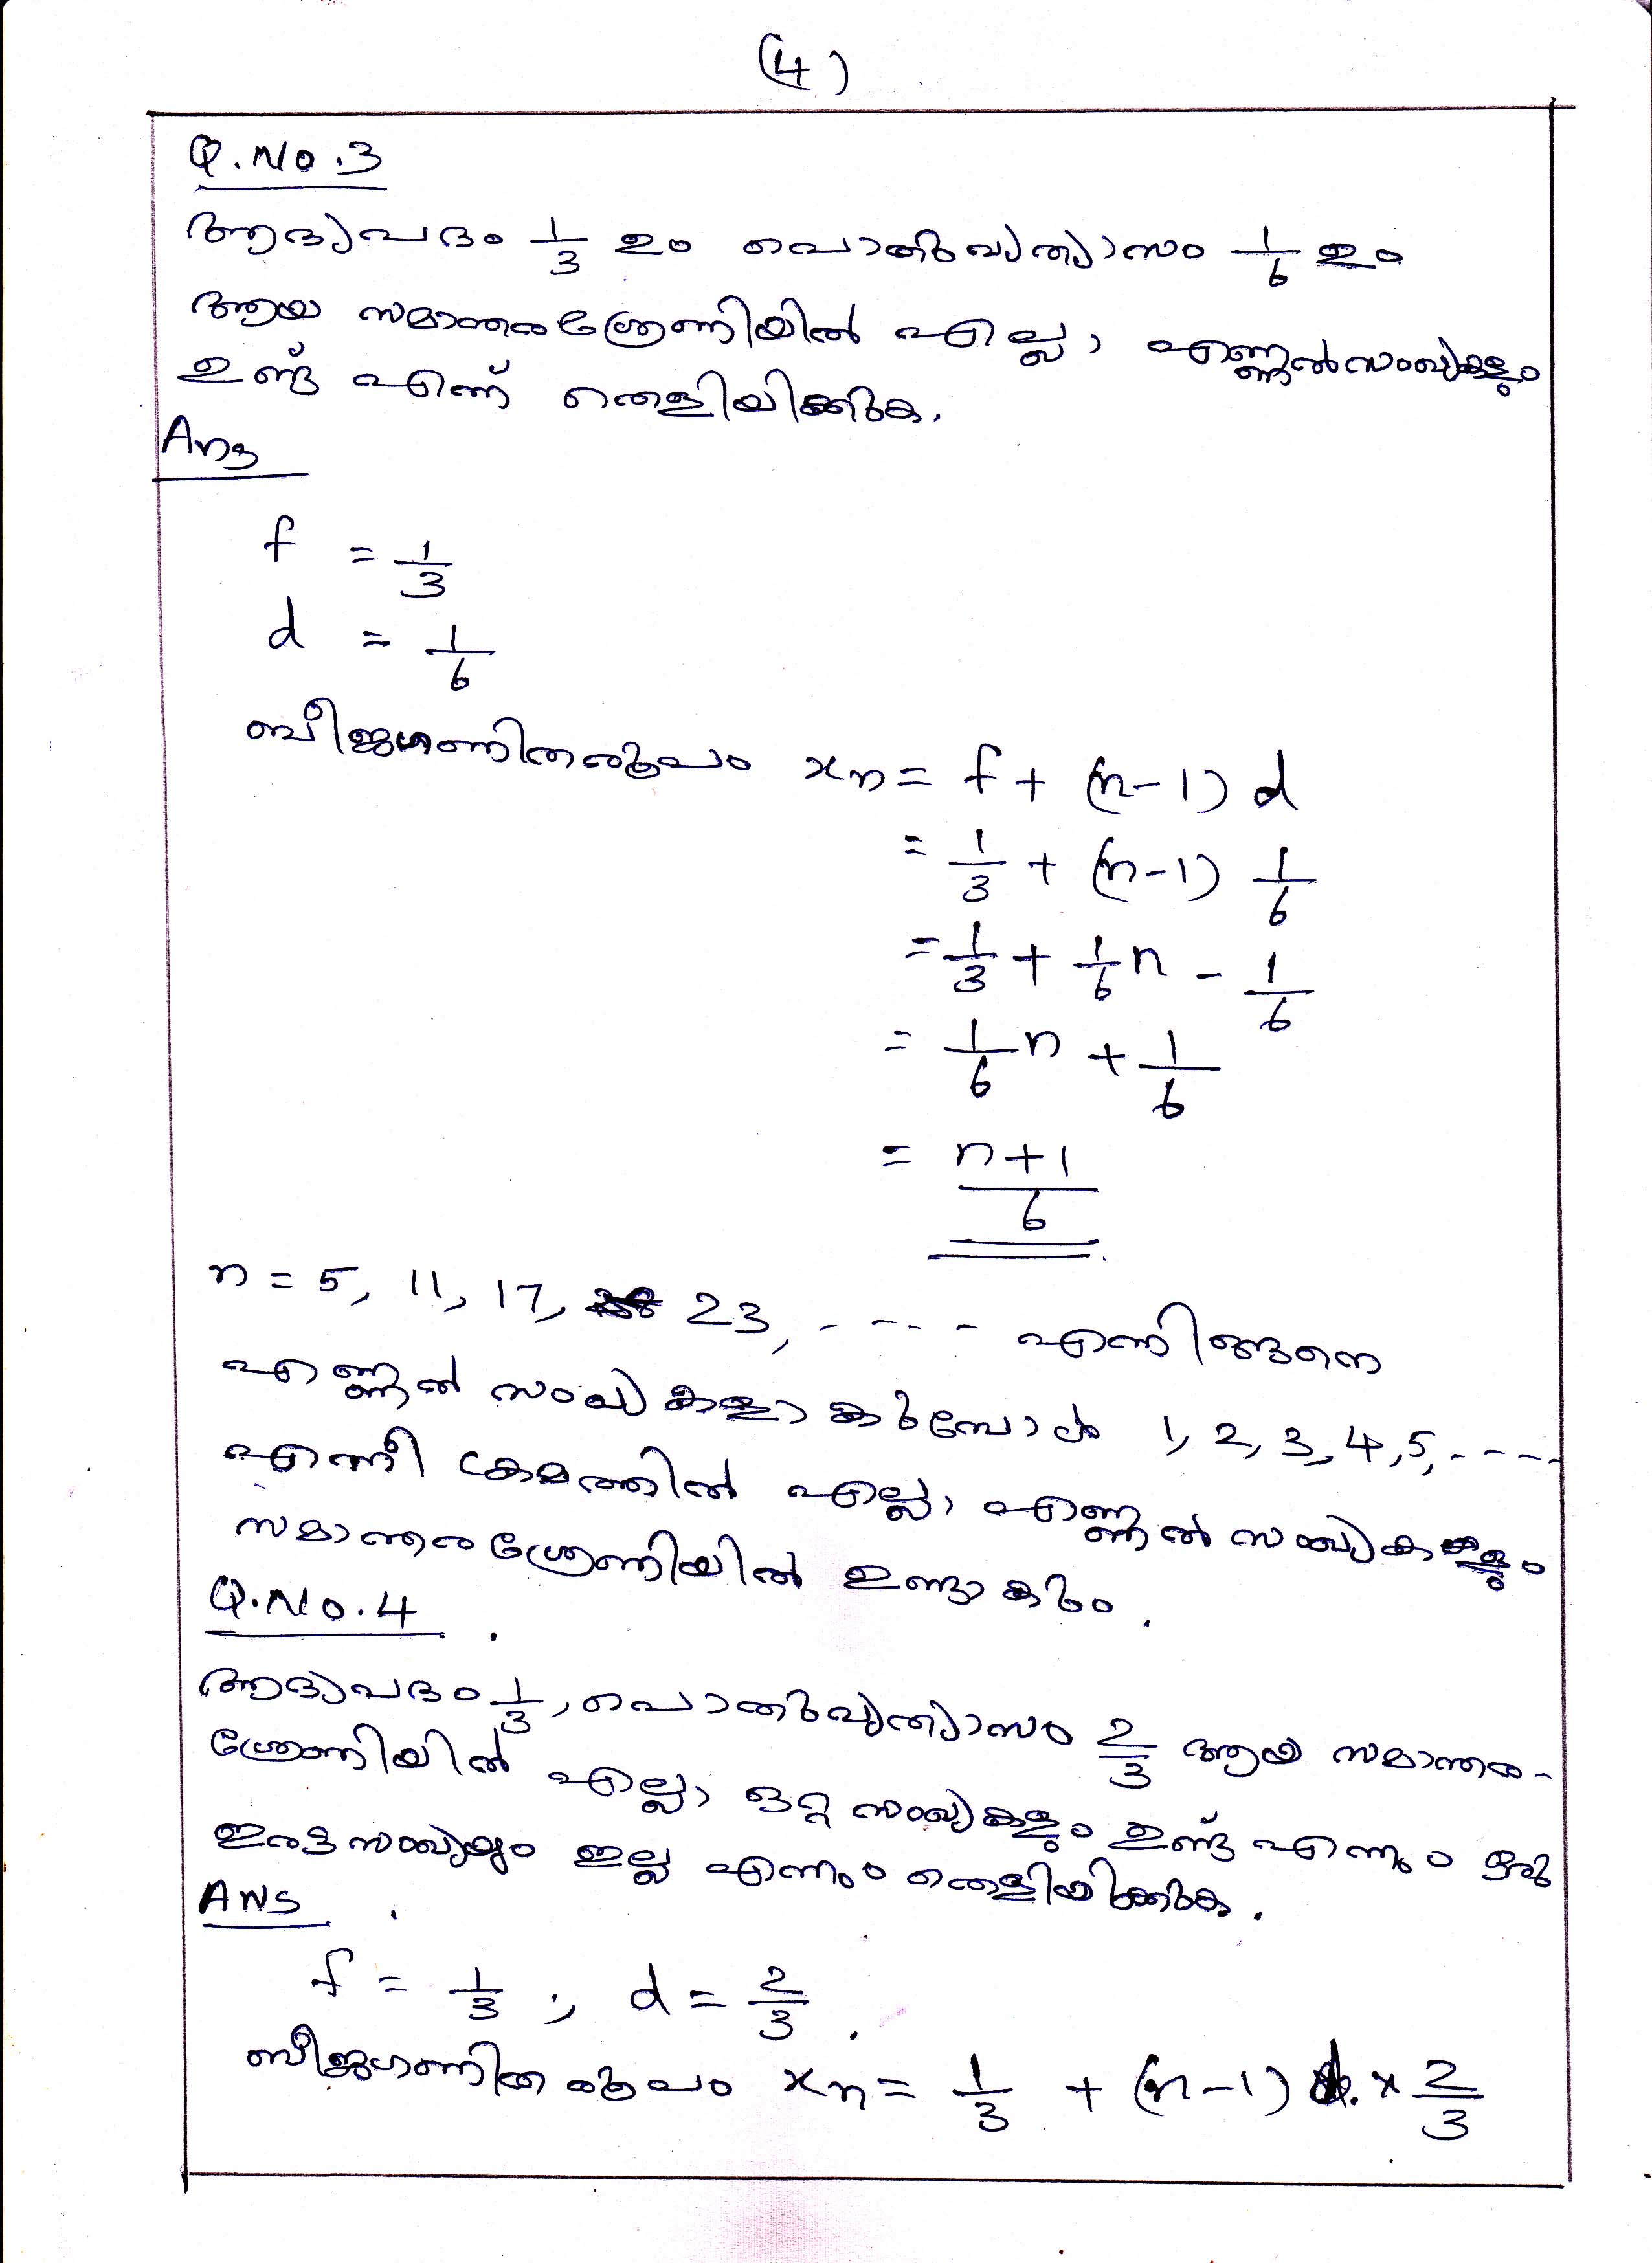 (4)
Q.No.3
ആദ്യപദം 1/3 ഉം പൊതുവ്യത്യാസം 1/6 ഉം
ആയ സമാന്തരശ്രേണിയിൽ എല്ലാ എണ്ണൽസംഖ്യകളും
ഉണ്ട് എന്ന് തെളിയിക്കുക.
Ans
f = 1/3
d = 1/6
ബീജഗണിതരൂപം xn = f + (n-1) d
= 1/3 + (n-1) 1/6
= 1/3 + 1/6 n - 1/6
= 1/6 n + 1/6
= n+1/6
n = 5, 11, 17, 23, ---- എന്നിങ്ങനെ
എണ്ണൽ സംഖ്യകളാകുമ്പോൾ 1, 2, 3, 4, 5, ----
എന്നീ ക്രമത്തിൽ എല്ലാ എണ്ണൽ സംഖ്യകളും
സമാന്തരശ്രേണിയിൽ ഉണ്ടാകും.
Q.No.4
ആദ്യപദം 1/3, പൊതുവ്യത്യാസം 2/3 ആയ സമാന്തര-
ശ്രേണിയിൽ എല്ലാ ഒറ്റ സംഖ്യകളും ഉണ്ട് എന്നും ഒരു
ഇരട്ട സംഖ്യയും ഇല്ല എന്നും തെളിയിക്കുക.
ANS
f = 1/3 ; d = 2/3.
ബീജഗണിത രൂപം xn = 1/3 + (n-1) × 2/3